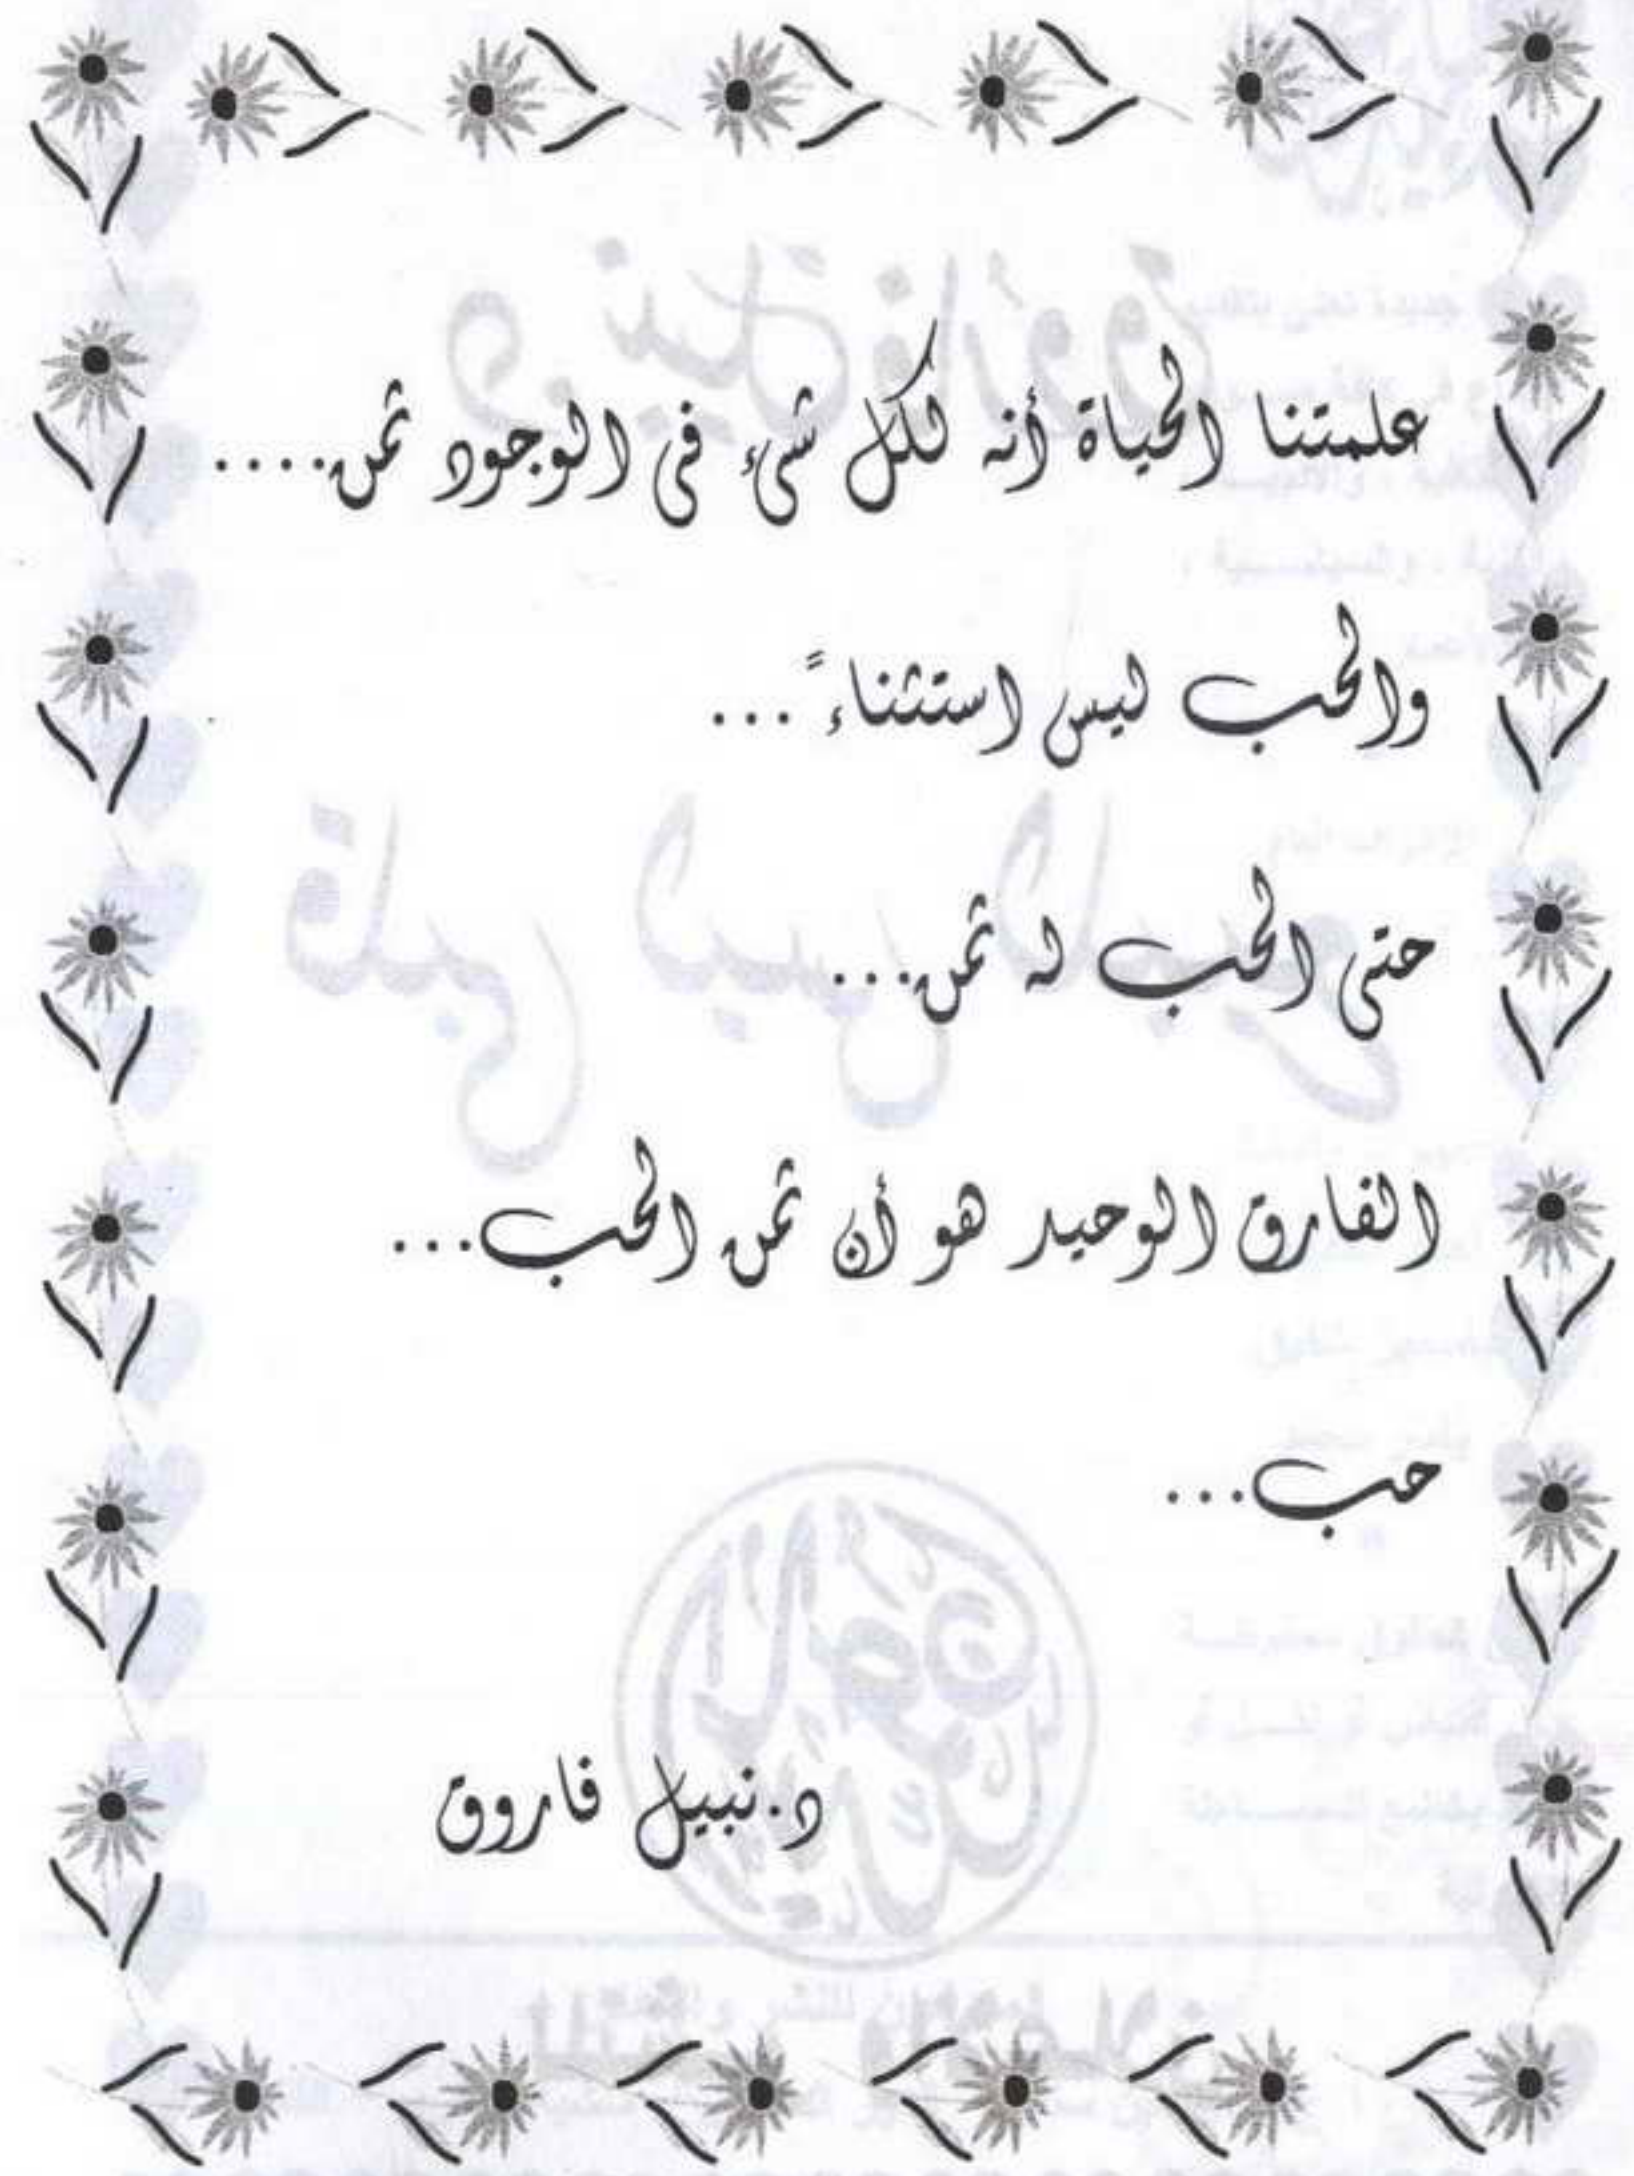 علمتنا الحياة أنه لكل شىء فى الوجود ثمن....
والحب ليس استثناءً ...
حتى الحب له ثمن...
الفارق الوحيد هو أن ثمن الحب...
حب...
د.نبيل فاروق